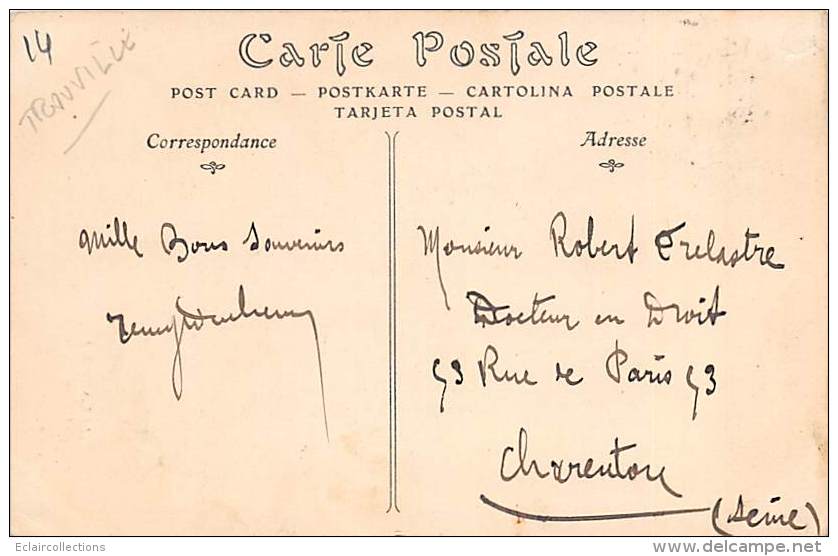 14
TROUVILLE
Carte Postale
POST CARD — POSTKARTE — CARTOLINA POSTALE
TARJETA POSTAL
Correspondance
Adresse
Mille Bons Souvenirs
Monsieur Robert Trelastre
Docteur en Droit
53 Rue de Paris 53
Charenton
(Seine)
Eclaircollections
delcampe.net